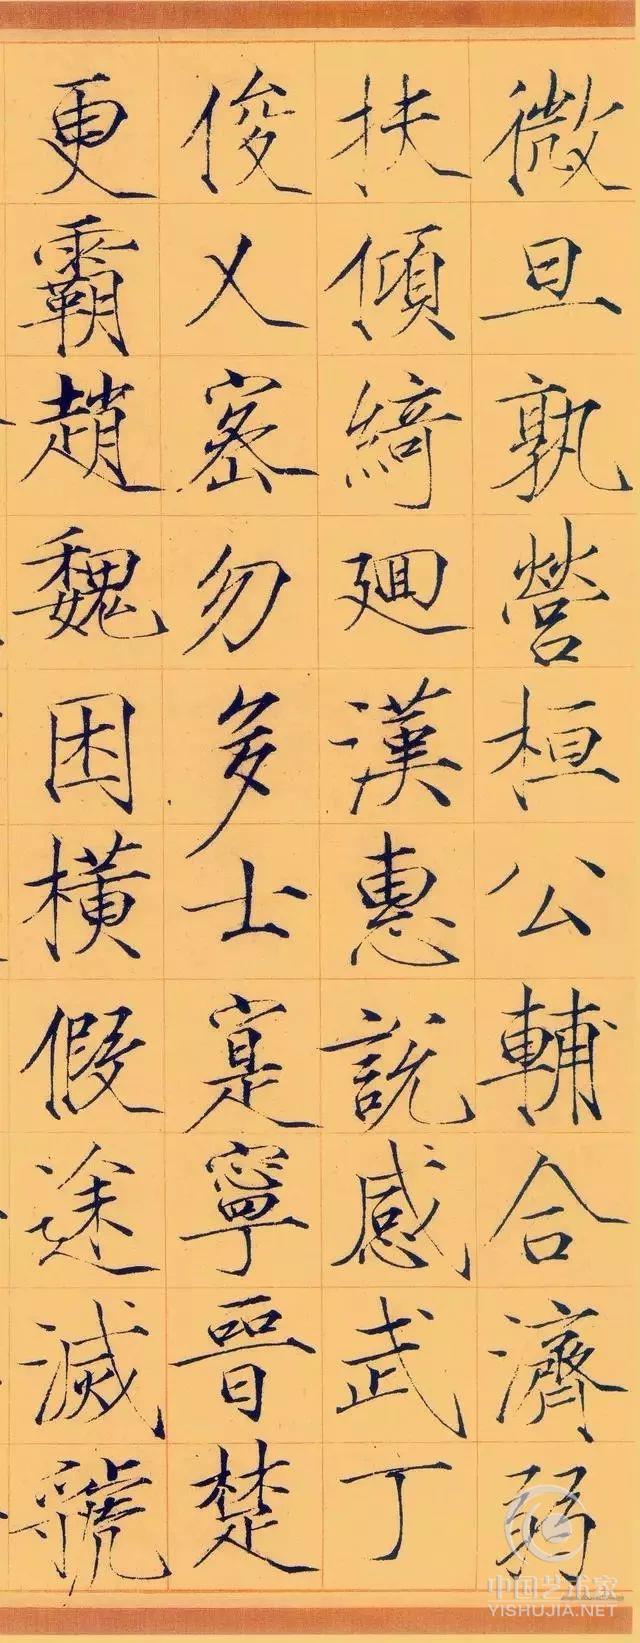 微旦孰營桓公輔合濟弱
扶傾綺迴漢惠說感武丁
俊乂密勿多士寔寧晉楚
更霸趙魏困橫假途滅虢
中国艺术家
YISHUJIA.NET